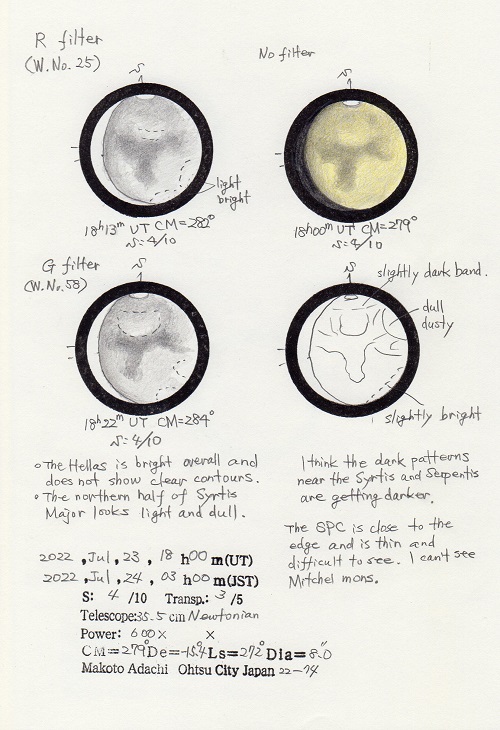 R filter
(W.No.25)
No filter
S
S
light
bright
18h13m UT CM=282°
S=4/10
18h00m UT CM=279°
S=4/10
G filter
(W.No.58)
S
S
slightly dark band.
dull
dusty
slightly bright
18h22m UT CM=284°
S=4/10
○The Hellas is bright overall and
does not show clear contours.
•The northern half of Syrtis
Major looks light and dull.
I think the dark patterns
near the Syrtis and Serpentis
are getting darker.
The SPC is close to the
edge and is thin and
difficult to see. I can't see
Mitchel mons.
2022 ,Jul, 23 , 18 h00 m(UT)
2022 ,Jul, 24 , 03 h00 m(JST)
S: 4 /10 Transp.: 3 /5
Telescope:35.5 cm Newtonian
Power: 600× ×
CM=279°De=-15.4°Ls=272°Dia=8.0"
Makoto Adachi Ohtsu City Japan 22-74